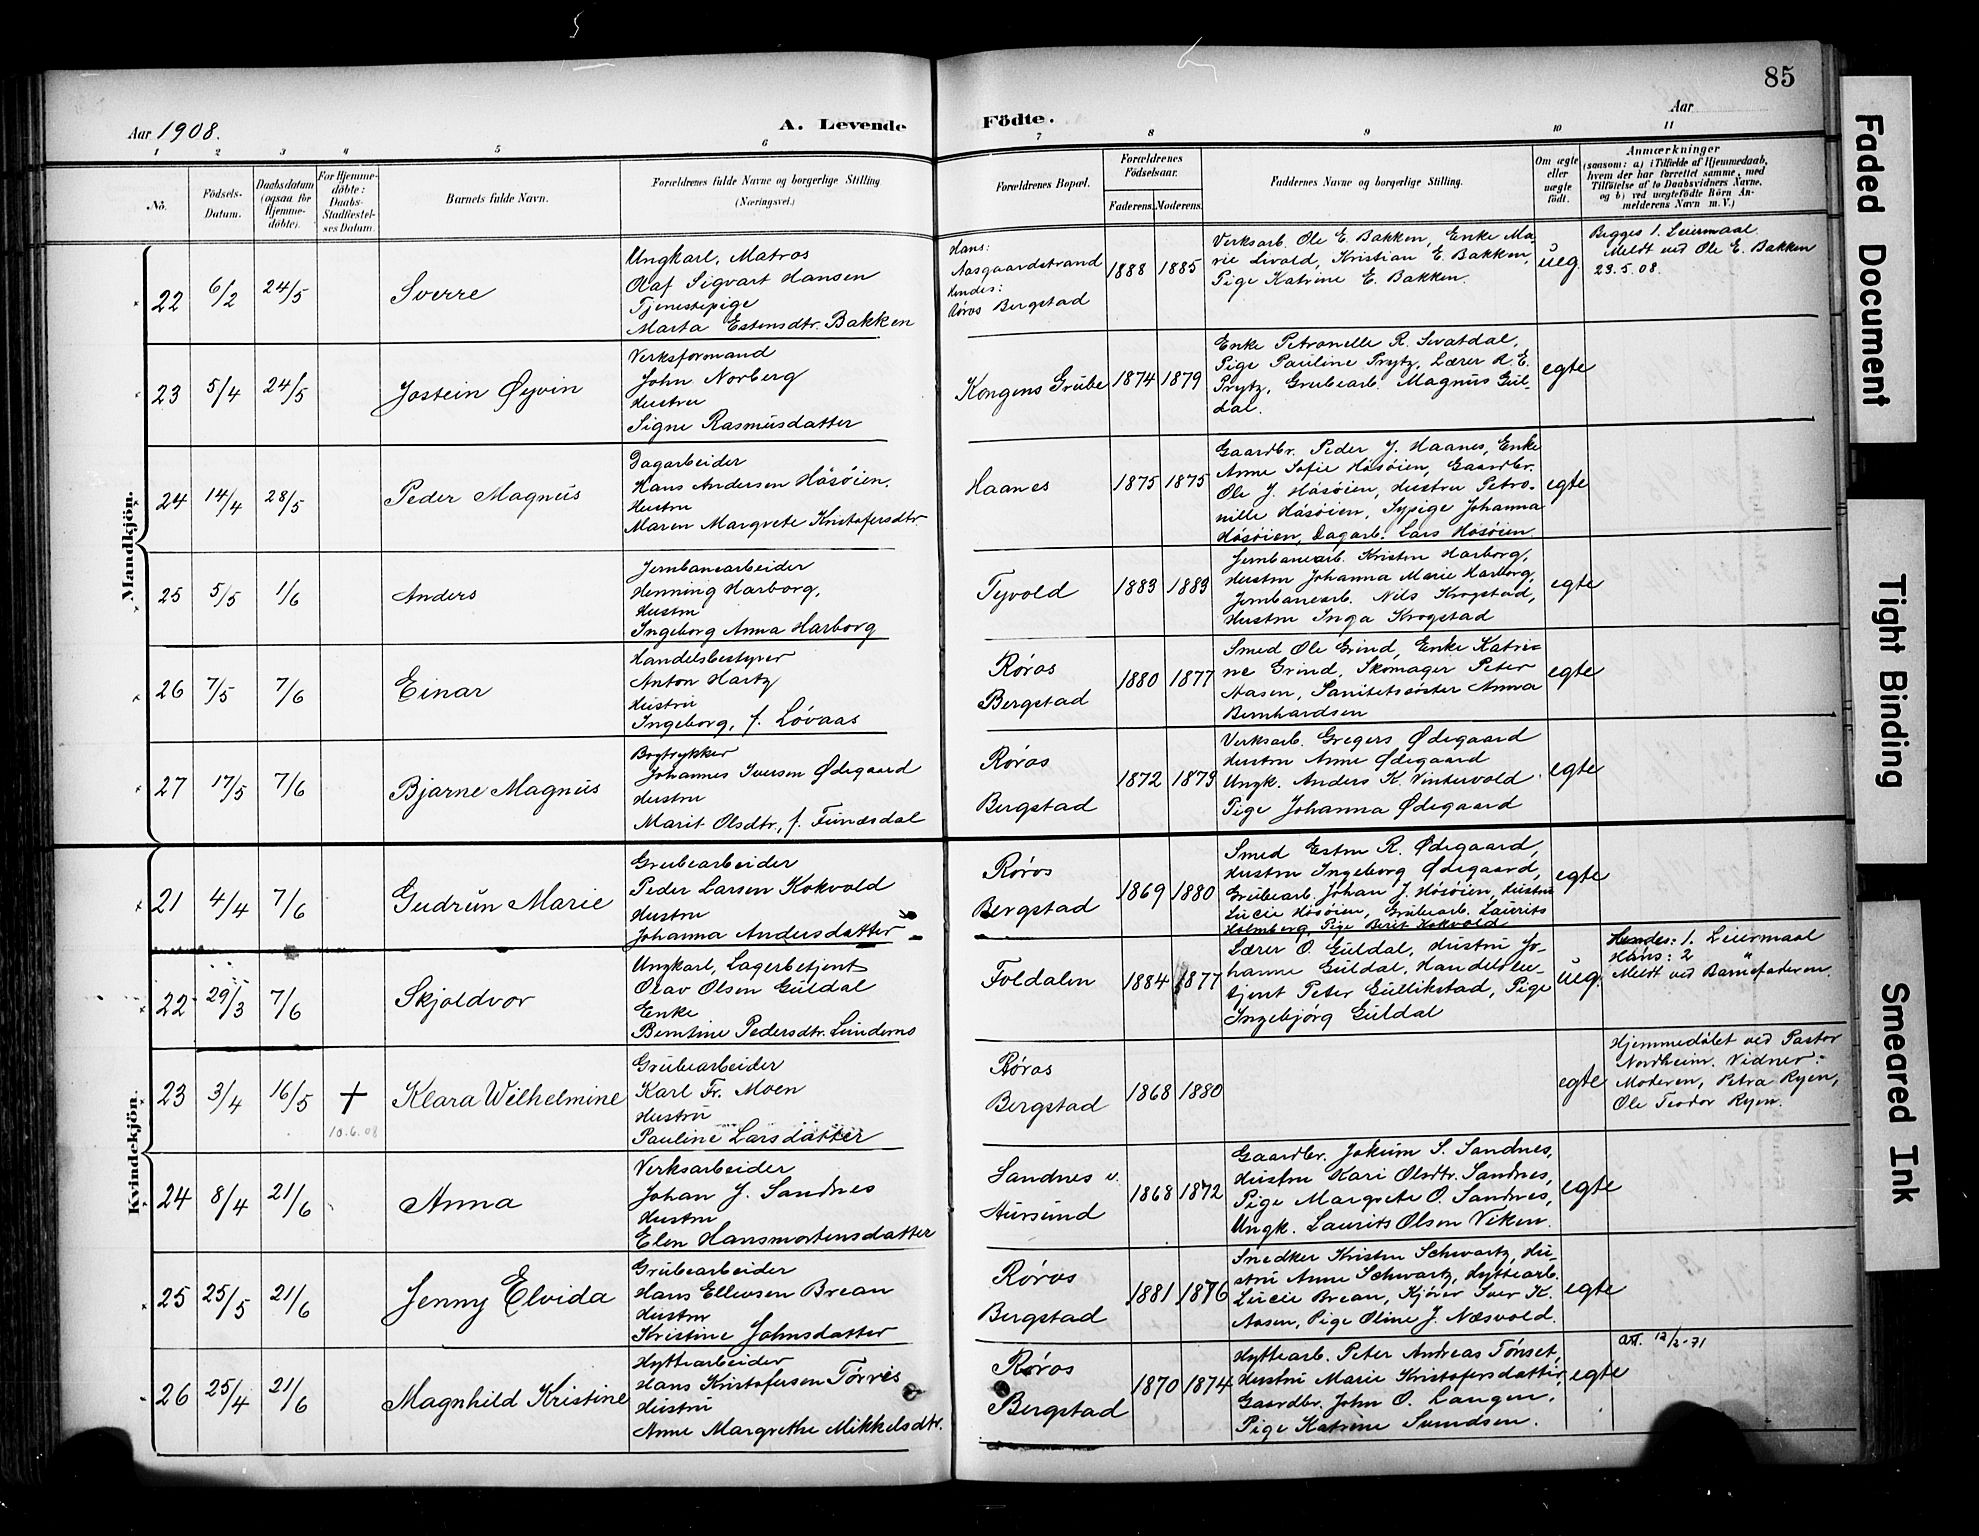 85
Aar 1908.
A. Levende Födte.
Aar
1 2 3 4 5 6 7 8 9 10 11
No.
Födsels-Datum.
Daabsdatum (ogsaa for Hjemmedöbte).
For Hjemmedöbte: Daabs-Stadfæstelses Datum.
Barnets fulde Navn.
Forældrenes fulde Navne og borgerlige Stilling
(Næringsvei.)
Forældrenes Bopæl.
Forældrenes Födselsaar.
Faderens. Moderens.
Faddernes Navne og borgerlige Stilling.
Om ægte eller uægte födt.
Anmærkninger
(saasom: a) i Tilfælde af Hjemmedaab,
hvem der har forrettet samme, med
Tilföielse af to Daabsvidners Navne,
og b) ved uægtefödte Börn An-
melderens Navn m. V.)
Mandkjön.
22 6/2 24/5 Sverre
Ungkarl, Matros
Olaf Sigvart Hansen
Tjenestepige
Marta Estensdtr. Bakken
Hans:
Aasgaardstrand
Hendes:
Røros Bergstad
1888 1885
Verksarb. Ole E. Bakken, Enke Ma-
rie Livold, Kristian E. Bakken,
Pige Katrine E. Bakken.
ueg
Begges 1. Leiermaal.
Meldt ved Ole E. Bakken
23.5.08.
23 5/4 24/5 Jostein Øyvin
Verksformand
John Norberg
Hustru
Signe Rasmusdatter
Kongens Grube
1874 1879
Enke Petronelle R. Svatdal,
Pige Pauline Prytz, Lærer R. E.
Prytz, Grubearb. Magnus Gul-
dal.
egte
24 14/4 28/5 Peder Magnus
Dagarbeider
Hans Andersen Håsøien.
Hustru
Maren Margrete Kristofersdtr
Haanes
1875 1875
Gaardbr. Peder J. Haanes, Enke
Anne Sofie Håsøien, Gaardbr.
Ole J. Håsøien, Hustru Petro-
nille Håsøien, Sypige Johanna
Håsøien, Dagarb. Lars Håsøien
egte
25 5/5 1/6 Anders
Jernbanearbeider
Henning Harborg,
Hustru
Ingeborg Anna Harborg
Tyvold
1883 1883
Jernbanearb. Kristen Harborg,
Hustru Johanna Marie Harborg,
Jernbanearb. Nils Krogstad,
Hustru Inga Krogstad
egte
26 7/5 7/6 Einar
Handelsbestyrer
Anton Hartz
Hustru
Ingeborg, f. Løvaas
Røros
Bergstad
1880 1877
Smed Ole Grind, Enke Katri-
ne Grind, Skomager Peter
Aasen, Sanitetssøster Anna
Bernhardsen
egte
27 17/5 7/6 Bjarne Magnus
Bogtrykker
Johannes Iversen Ødegaard
Hustru
Marit Olsdtr., f. Funæsdal
Røros
Bergstad
1872 1879
Verksarb. Gregers Ødegaard
Hustru Anne Ødegaard
Ungk. Anders K. Vintervold
Pige Johanna Ødegaard
egte
Kvindekjön.
21 4/4 7/6 Gudrun Marie
Grubearbeider
Peder Larsen Kokvold
Hustru
Johanna Andersdatter
Røros
Bergstad
1869 1880
Smed Esten R. Ødegaard,
Hustru Ingeborg Ødegaard,
Grubearb. Johan J. Håsøien, Hustru
Lucie Håsøien, Grubearb. Laurits
Holmberg, Pige Berit Kokvold
egte
22 29/3 7/6 Skjoldvor
Ungkarl, Lagerbetjent
Olav Olsen Guldal
Enke
Berntine Pedersdtr. Lundemo
Foldalen
1884 1877
Lærer O. Guldal, Hustru Jo-
hanne Guldal, Handelsbe-
tjent Peter Gullikstad, Pige
Ingebjörg Guldal
ueg.
Hendes: 1. Leiermaal
Hans: 2 "
Meldt ved Barnefaderen.
23 3/4 16/5 + 10.6.08 Klara Wilhelmine
Grubearbeider
Karl Fr. Moen
Hustru
Pauline Larsdatter
Røros
Bergstad
1868 1880
egte
Hjemmedøbt ved Pastor
Nordheim. Vidner:
Moderen, Petra Ryen,
Ole Teodor Ryen.
24 8/4 21/6 Anna
Verksarbeider
Johan J. Sandnes
Hustru
Elen Hansmortensdatter
Sandnes v.
Aursund
1868 1872
Gaardbr. Jokum S. Sandnes,
Hustru Kari Olsdtr. Sandnes,
Pige Margrete O. Sandnes,
Ungk. Laurits Olsen Viken.
egte
25 25/5 21/6 Jenny Elvida
Grubearbeider
Hans Ellevsen Brean
Hustru
Kristine Johnsdatter
Røros
Bergstad
1881 1876
Snedker Kristen Schwartz, Hu-
stru Anne Schwartz, Hyttearb.
Lucie Brean, Kjører Iver K.
Aasen, Pige Oline J. Næsvold.
egte
26 25/4 21/6 Magnhild Kristine
Hyttearbeider
Hans Kristofersen Tørres
Hustru
Anne Margrethe Mikkelsdtr.
Røros
Bergstad
1870 1874
Hyttearb. Peter Andreas Tønset,
Hustru Marie Kristofersdatter,
Gaardbr. John O. Langen,
Pige Katrine Svendsen.
egte
att. 12/2-71
Faded Document
Tight Binding
Smeared Ink